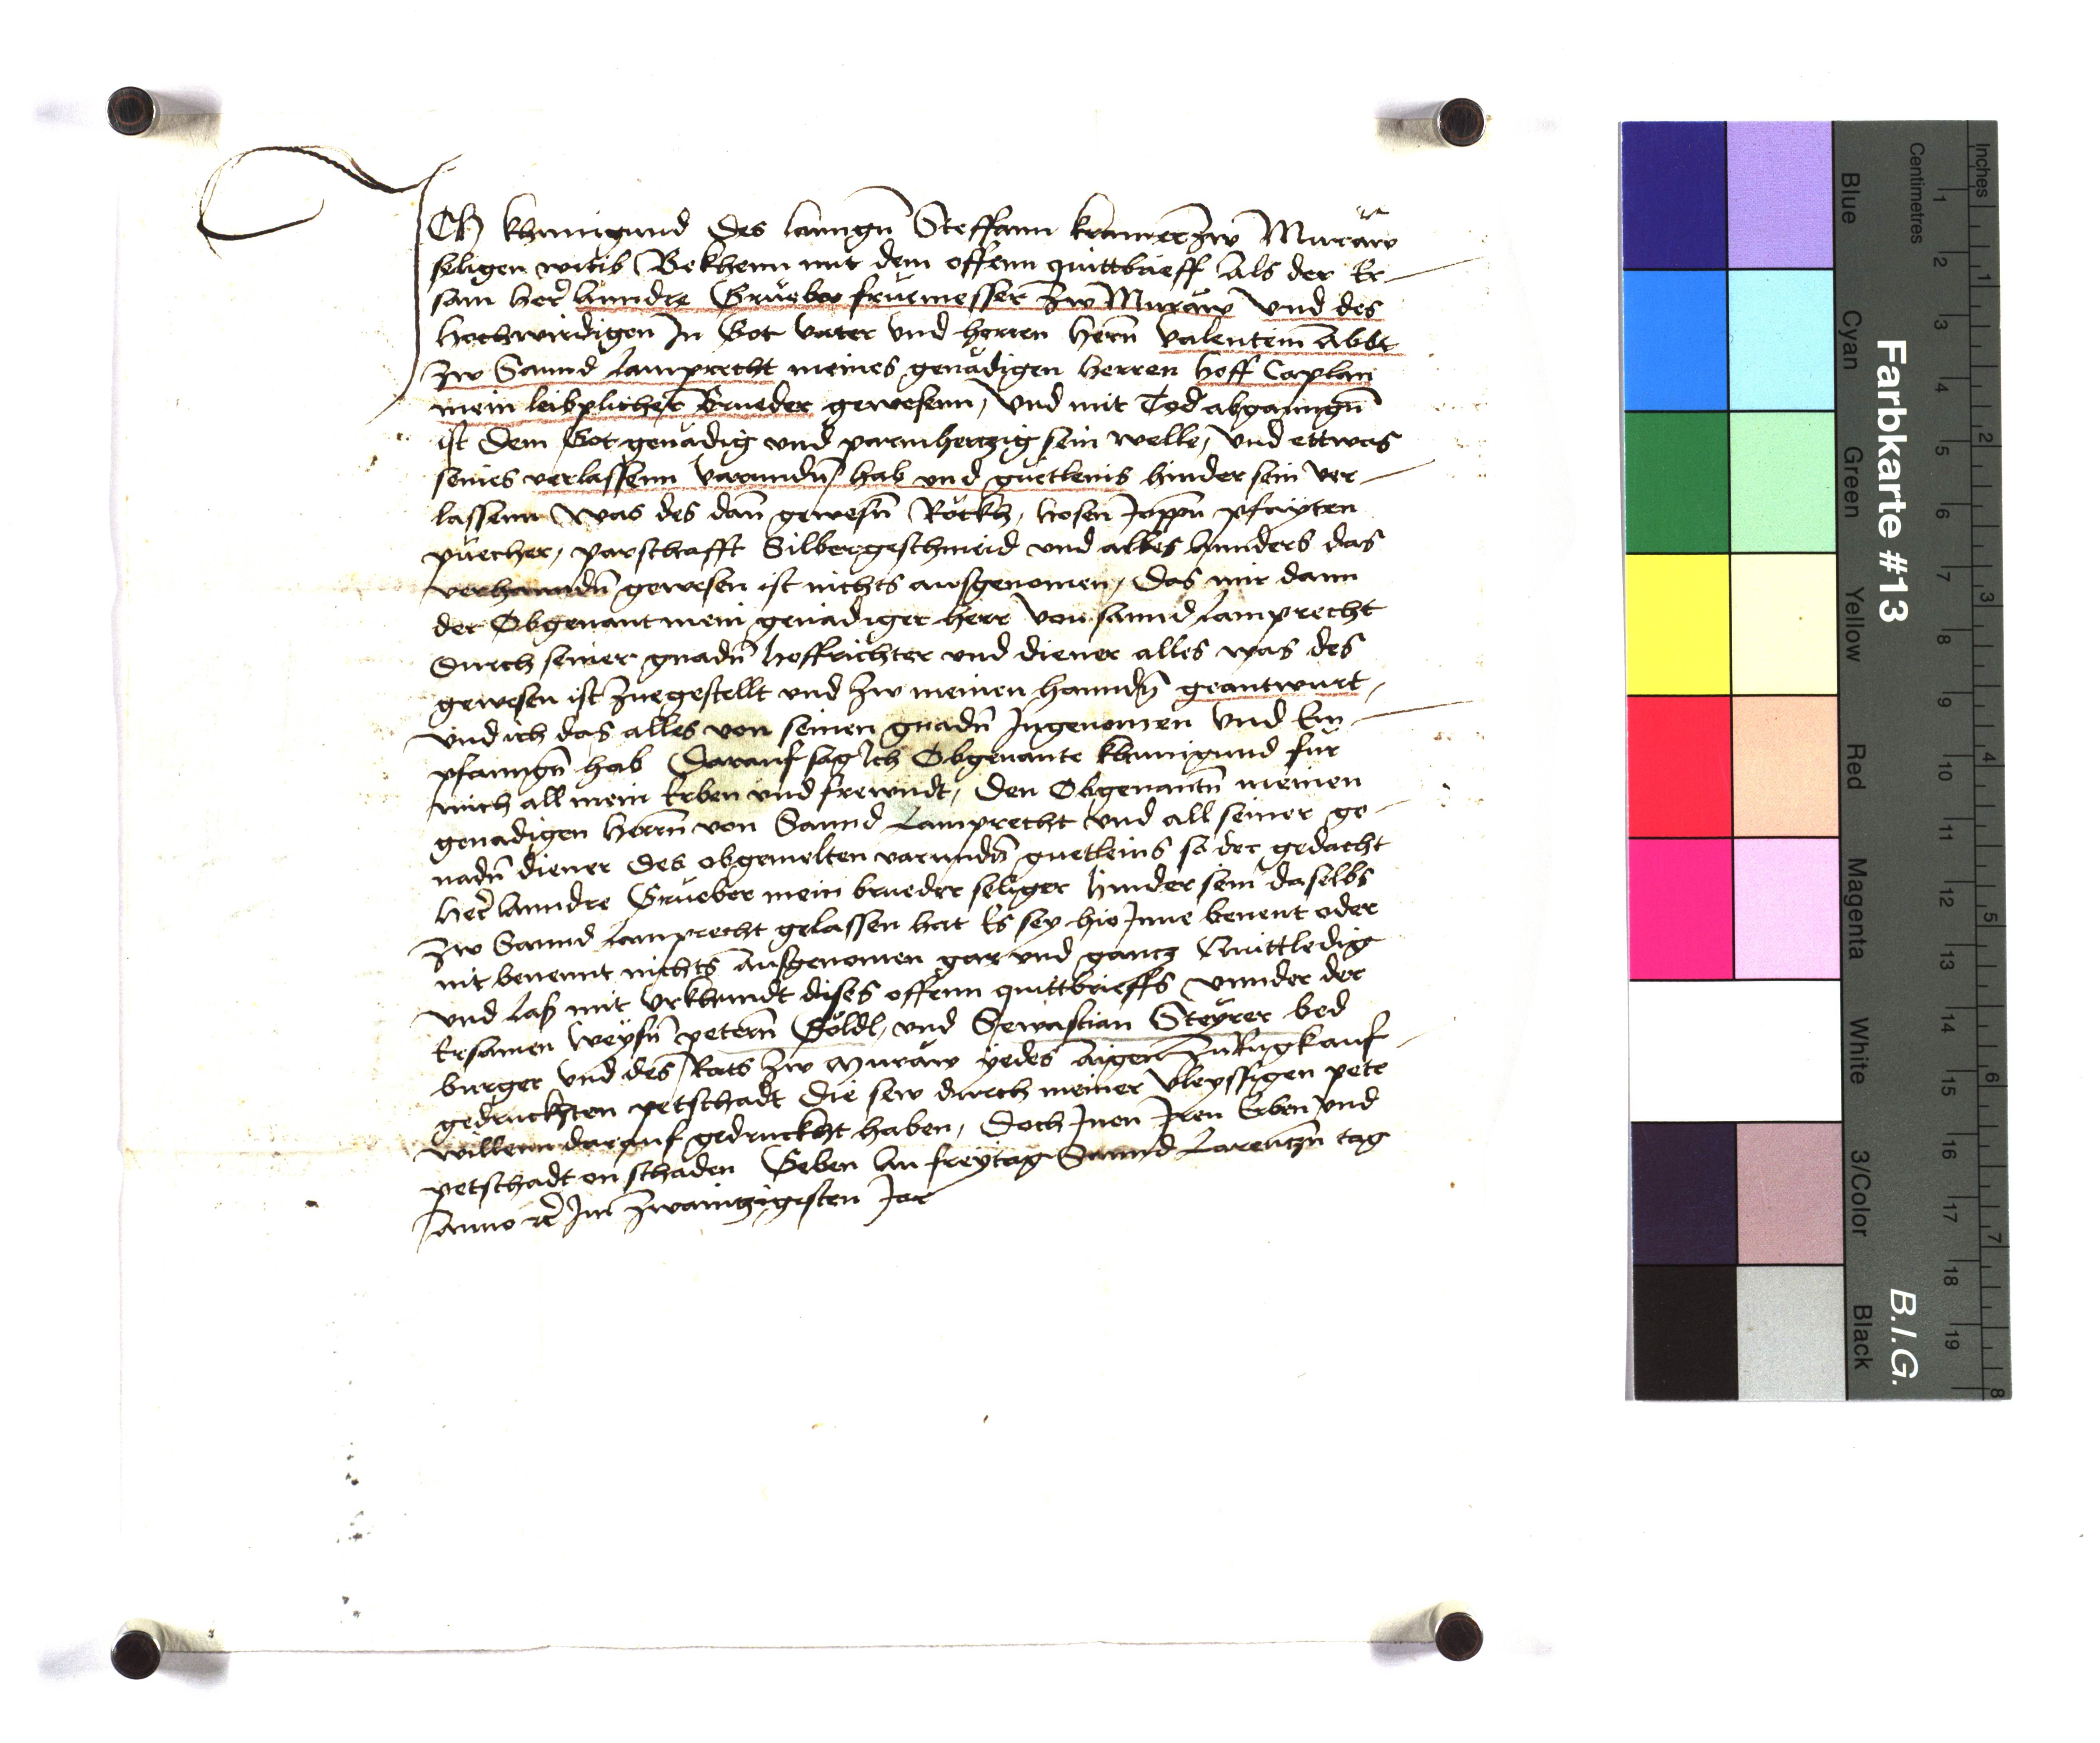 Ich khunigund des lanngn Steffann kramer zw Muraw
seligen witib Bekhenn mit dem offenn quittbrieff Als der Er-
sam her Anndre Grueber fruemesser zw Muraw Und des
Hochwirdigen In Got vater Und herren Hernn Valentein Abbt
zw Sannd Lamprecht meines genadigen Herren Hoff Caplan
mein leibplicher Brueder gewesenn, Und mit Tod abganngn
ist Dem Got genadig und parmhertzig sein welle, Und ettwas
seines verlassenn varunden hab und guetleins hinder sein ver-
lassenn Was des dan gewesn Rockh, Hosen Joppn pfayten
puecher, parschafft Silbergeschmeid und alles Annders das
verhanndn gewesen ist nichts ausgenomen, Das mir dann
der Obgenant mein genadiger Herr Von sannd Lamprecht
Durch seiner gnadn Hoffrichter und diener alles was des
gewesen ist zuegestellt und zw meinen Hanndn geantwurt,
Und ich das alles von seinen gnadn Ingenomen Und Em-
pfanngn hab Darauf sag Ich Obgenante khunigund fur
mich all mein Erben und frewndt, Den Obgenantn meinen
genadigen Herrn von Sannd Lamprecht Und all seiner ge-
nadn diener Des obgemelten varundn guetleins so der gedacht
Her Anndre Grueber mein brueder seliger Hinder sein daselbs
zw Sannd Lamprecht gelassen hat Es sey hie Inne benent oder
nit benennt nichts Ausgenomen gar und gancz Quittledig
Und Las mit Urkhundt dises offenn quittbrieffs Unnder der
Ersamen Weysn petern Goldl, und Sewastian Steyrer bed
burger Und des Rats zw Muraw yedes aigen zu Rugk auf
gedruckhten petschadt Die sew durch meiner Vleyssigen pete
willenn darauf gedruckht haben, Doch Inen Iren Erben Und
petschadt on schaden Geben An freytag Sannd Larentzn tag
Anno rc Im zwaintzigesten Jar
Farbkarte #13
B.I.G.
Inches
Centimetres
1 2 3 4 5 6 7 8 9 10 11 12 13 14 15 16 17 18 19
1 2 3 4 5 6 7 8
Blue
Cyan
Green
Yellow
Red
Magenta
White
3/Color
Black